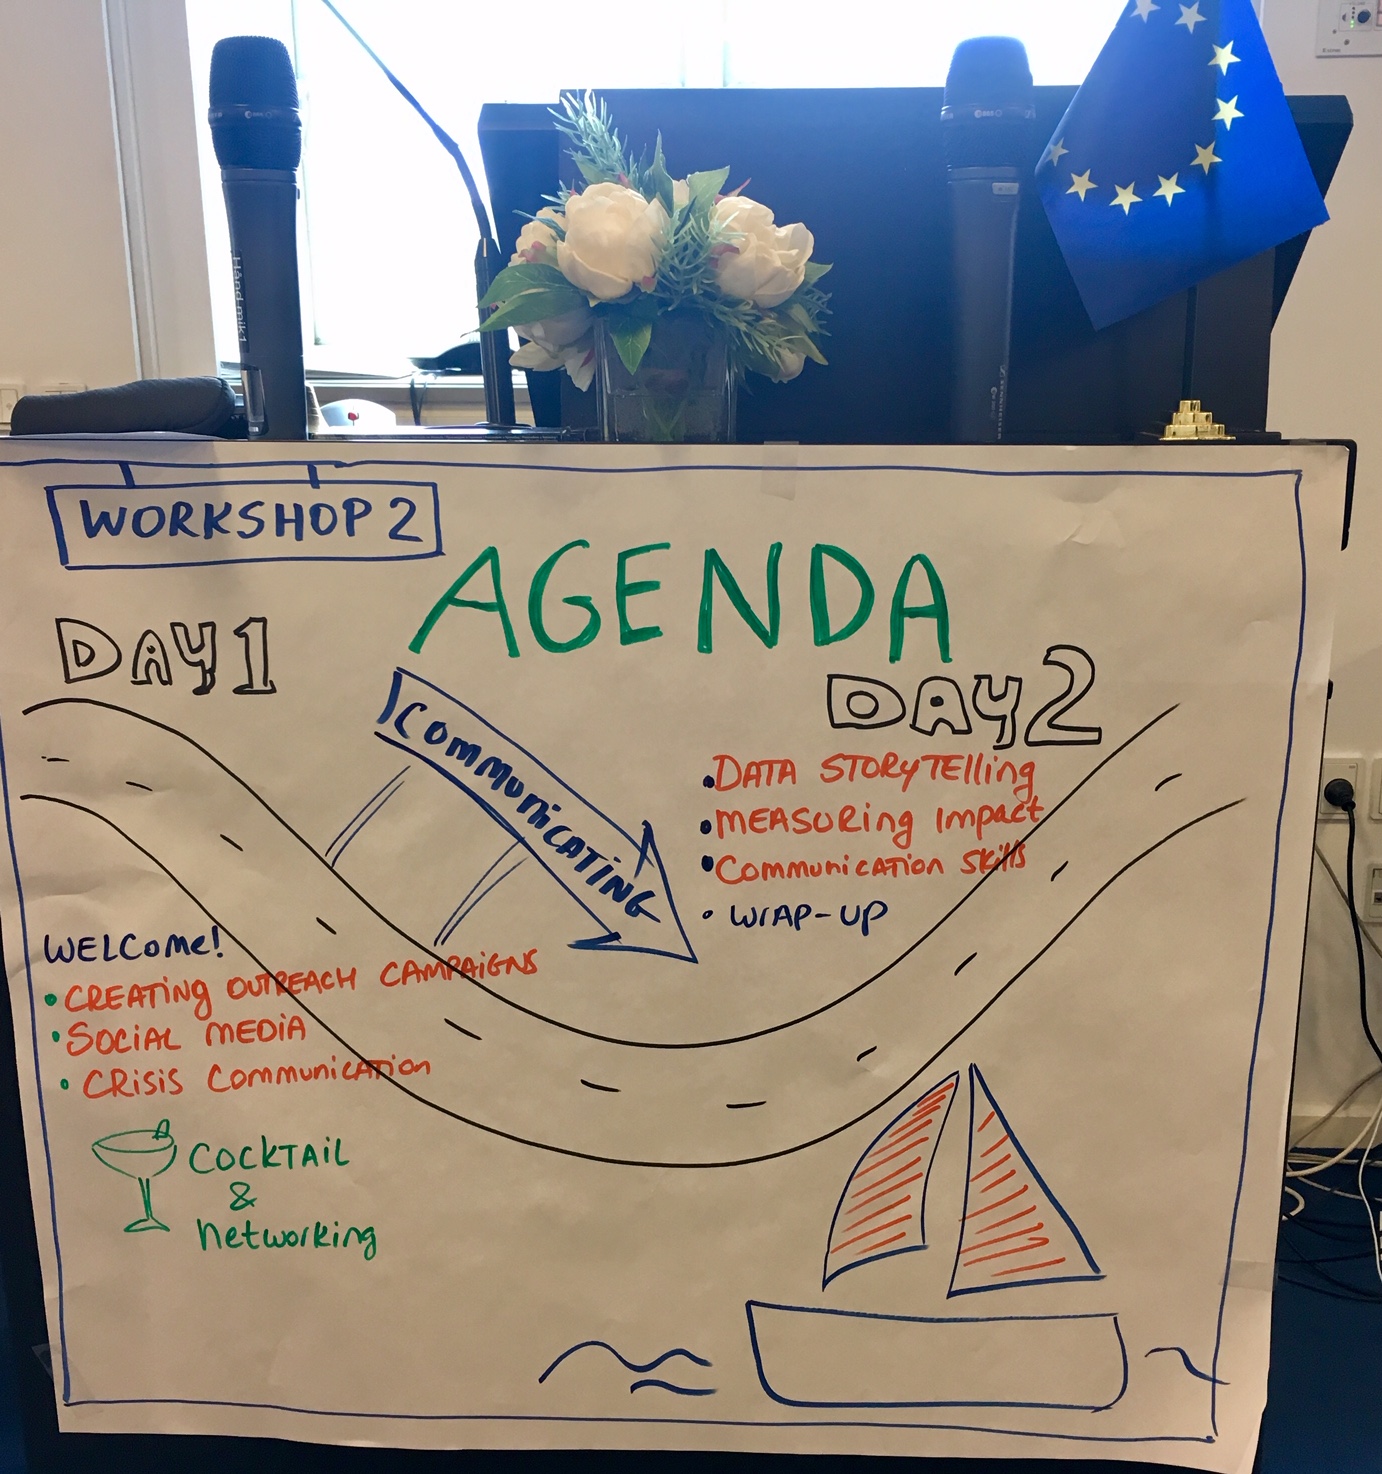 Hand mik1
WORKSHOP 2
AGENDA
DAY 1
COMMUNICATING
WELCOME!
• CREATING OUTREACH CAMPAIGNS
• SOCIAL MEDIA
• CRISIS COMMUNICATION
COCKTAIL
&
networking
DAY 2
• DATA STORYTElling
• MEASURing Impact
• Communication Skills
• WRAP-UP